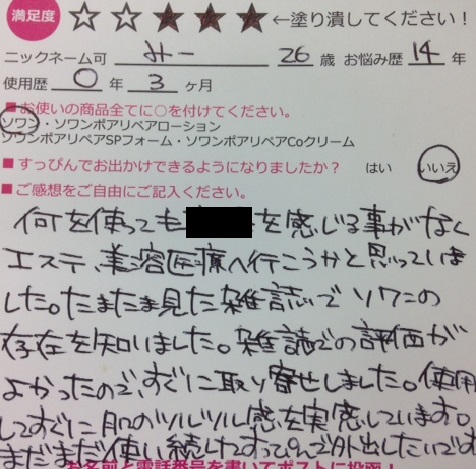 満足度 ☆☆★★★ ←塗り潰してください!
ニックネーム可 みー 26 歳 お悩み歴 14 年
使用歴 0 年 3 ヶ月
■お使いの商品全てに○を付けてください。
ソワン・ソワンポアリペアローション
ソワンポアリペアSPフォーム・ソワンポアリペアCoクリーム
■すっぴんでお出かけできるようになりましたか? はい いいえ
■ご感想をご自由にご記入ください。
何を使っても を感じる事がなく
エステ、美容医療へ行こうかと思っていま
した。たまたま見た雑誌でソワンの
存在を知りました。雑誌での評価が
よかったので、すぐに取り寄せしました。使用
してすぐに肌のツルツル感を実感しています。
まだまだ使い続けてすっぴんで外出したいです
お名前と電話番号を書いてポストに投函!